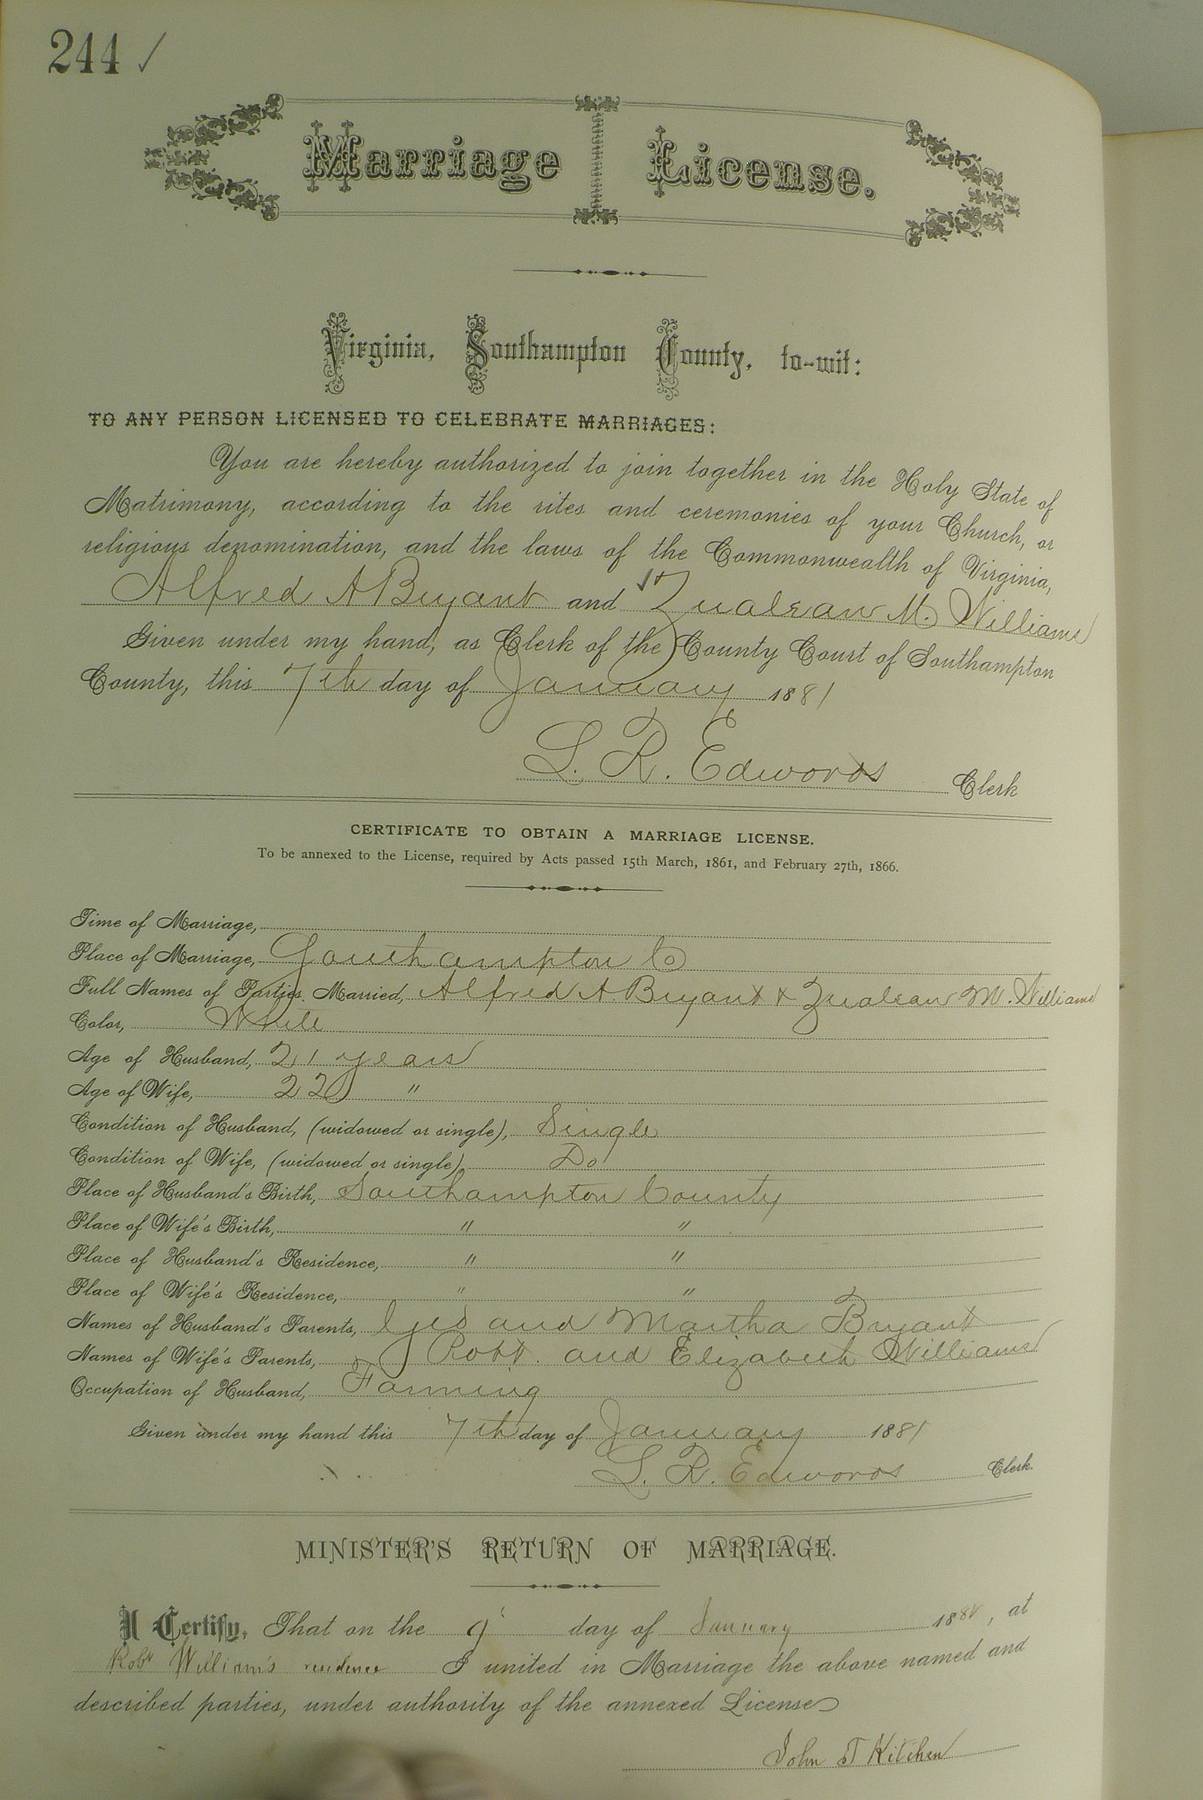 244 ✓
Marriage License.
Virginia, Southampton County, to-wit:
TO ANY PERSON LICENSED TO CELEBRATE MARRIAGES:
You are hereby authorized to join together in the Holy State of
Matrimony, according to the rites and ceremonies of your Church, or
religious denomination, and the laws of the Commonwealth of Virginia,
Alfred A Bryant and Zualean M. Williams
Given under my hand, as Clerk of the County Court of Southampton
County, this 7th day of January 1881
L. R. Edwards Clerk
CERTIFICATE TO OBTAIN A MARRIAGE LICENSE.
To be annexed to the License, required by Acts passed 15th March, 1861, and February 27th, 1866.
Time of Marriage,
Place of Marriage, Southampton Co
Full Names of Parties Married, Alfred A. Bryant & Zualean M. Williams
Color, White
Age of Husband, 21 years
Age of Wife, 22 "
Condition of Husband, (widowed or single), Single
Condition of Wife, (widowed or single), Do
Place of Husband's Birth, Southampton County
Place of Wife's Birth, " "
Place of Husband's Residence, " "
Place of Wife's Residence, " "
Names of Husband's Parents, and Martha Bryant
Names of Wife's Parents, Robt. and Elizabeth Williams
Occupation of Husband, Farming
Given under my hand this 7th day of January 1881
L. R. Edwards Clerk.
MINISTER'S RETURN OF MARRIAGE.
I Certify, That on the 9 day of January 188 , at
Robt William's residence I united in Marriage the above named and
described parties, under authority of the annexed License
John T Kitchen